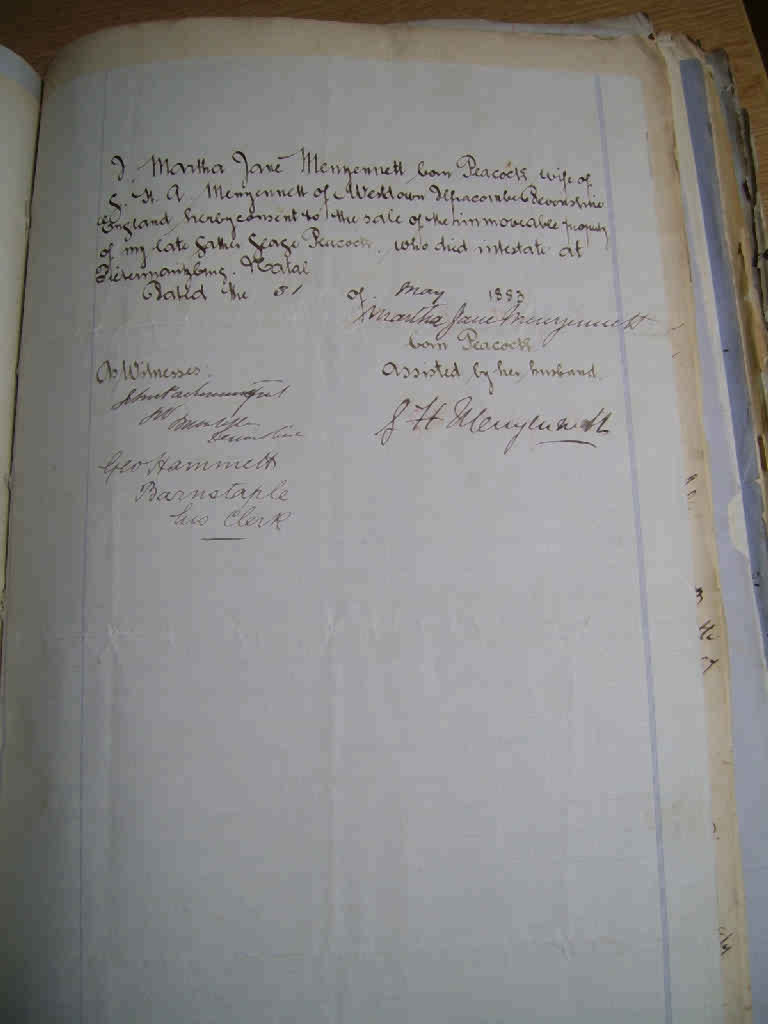 I, Martha Jane Menyennett born Peacock wife of
G. H. A Menyennett of Westdown Ilfracombe Devonshire
England, hereby consent to the sale of the immoveable property
of my late father George Peacock, who died intestate at
Pietermaritzburg. Natal
Dated the 31 of May 1883
Martha Jane Menyennett
born Peacock
As Witnesses:
Assisted by her husband.
G H Menyennett
Geo Hammett
Barnstaple
his Clerk